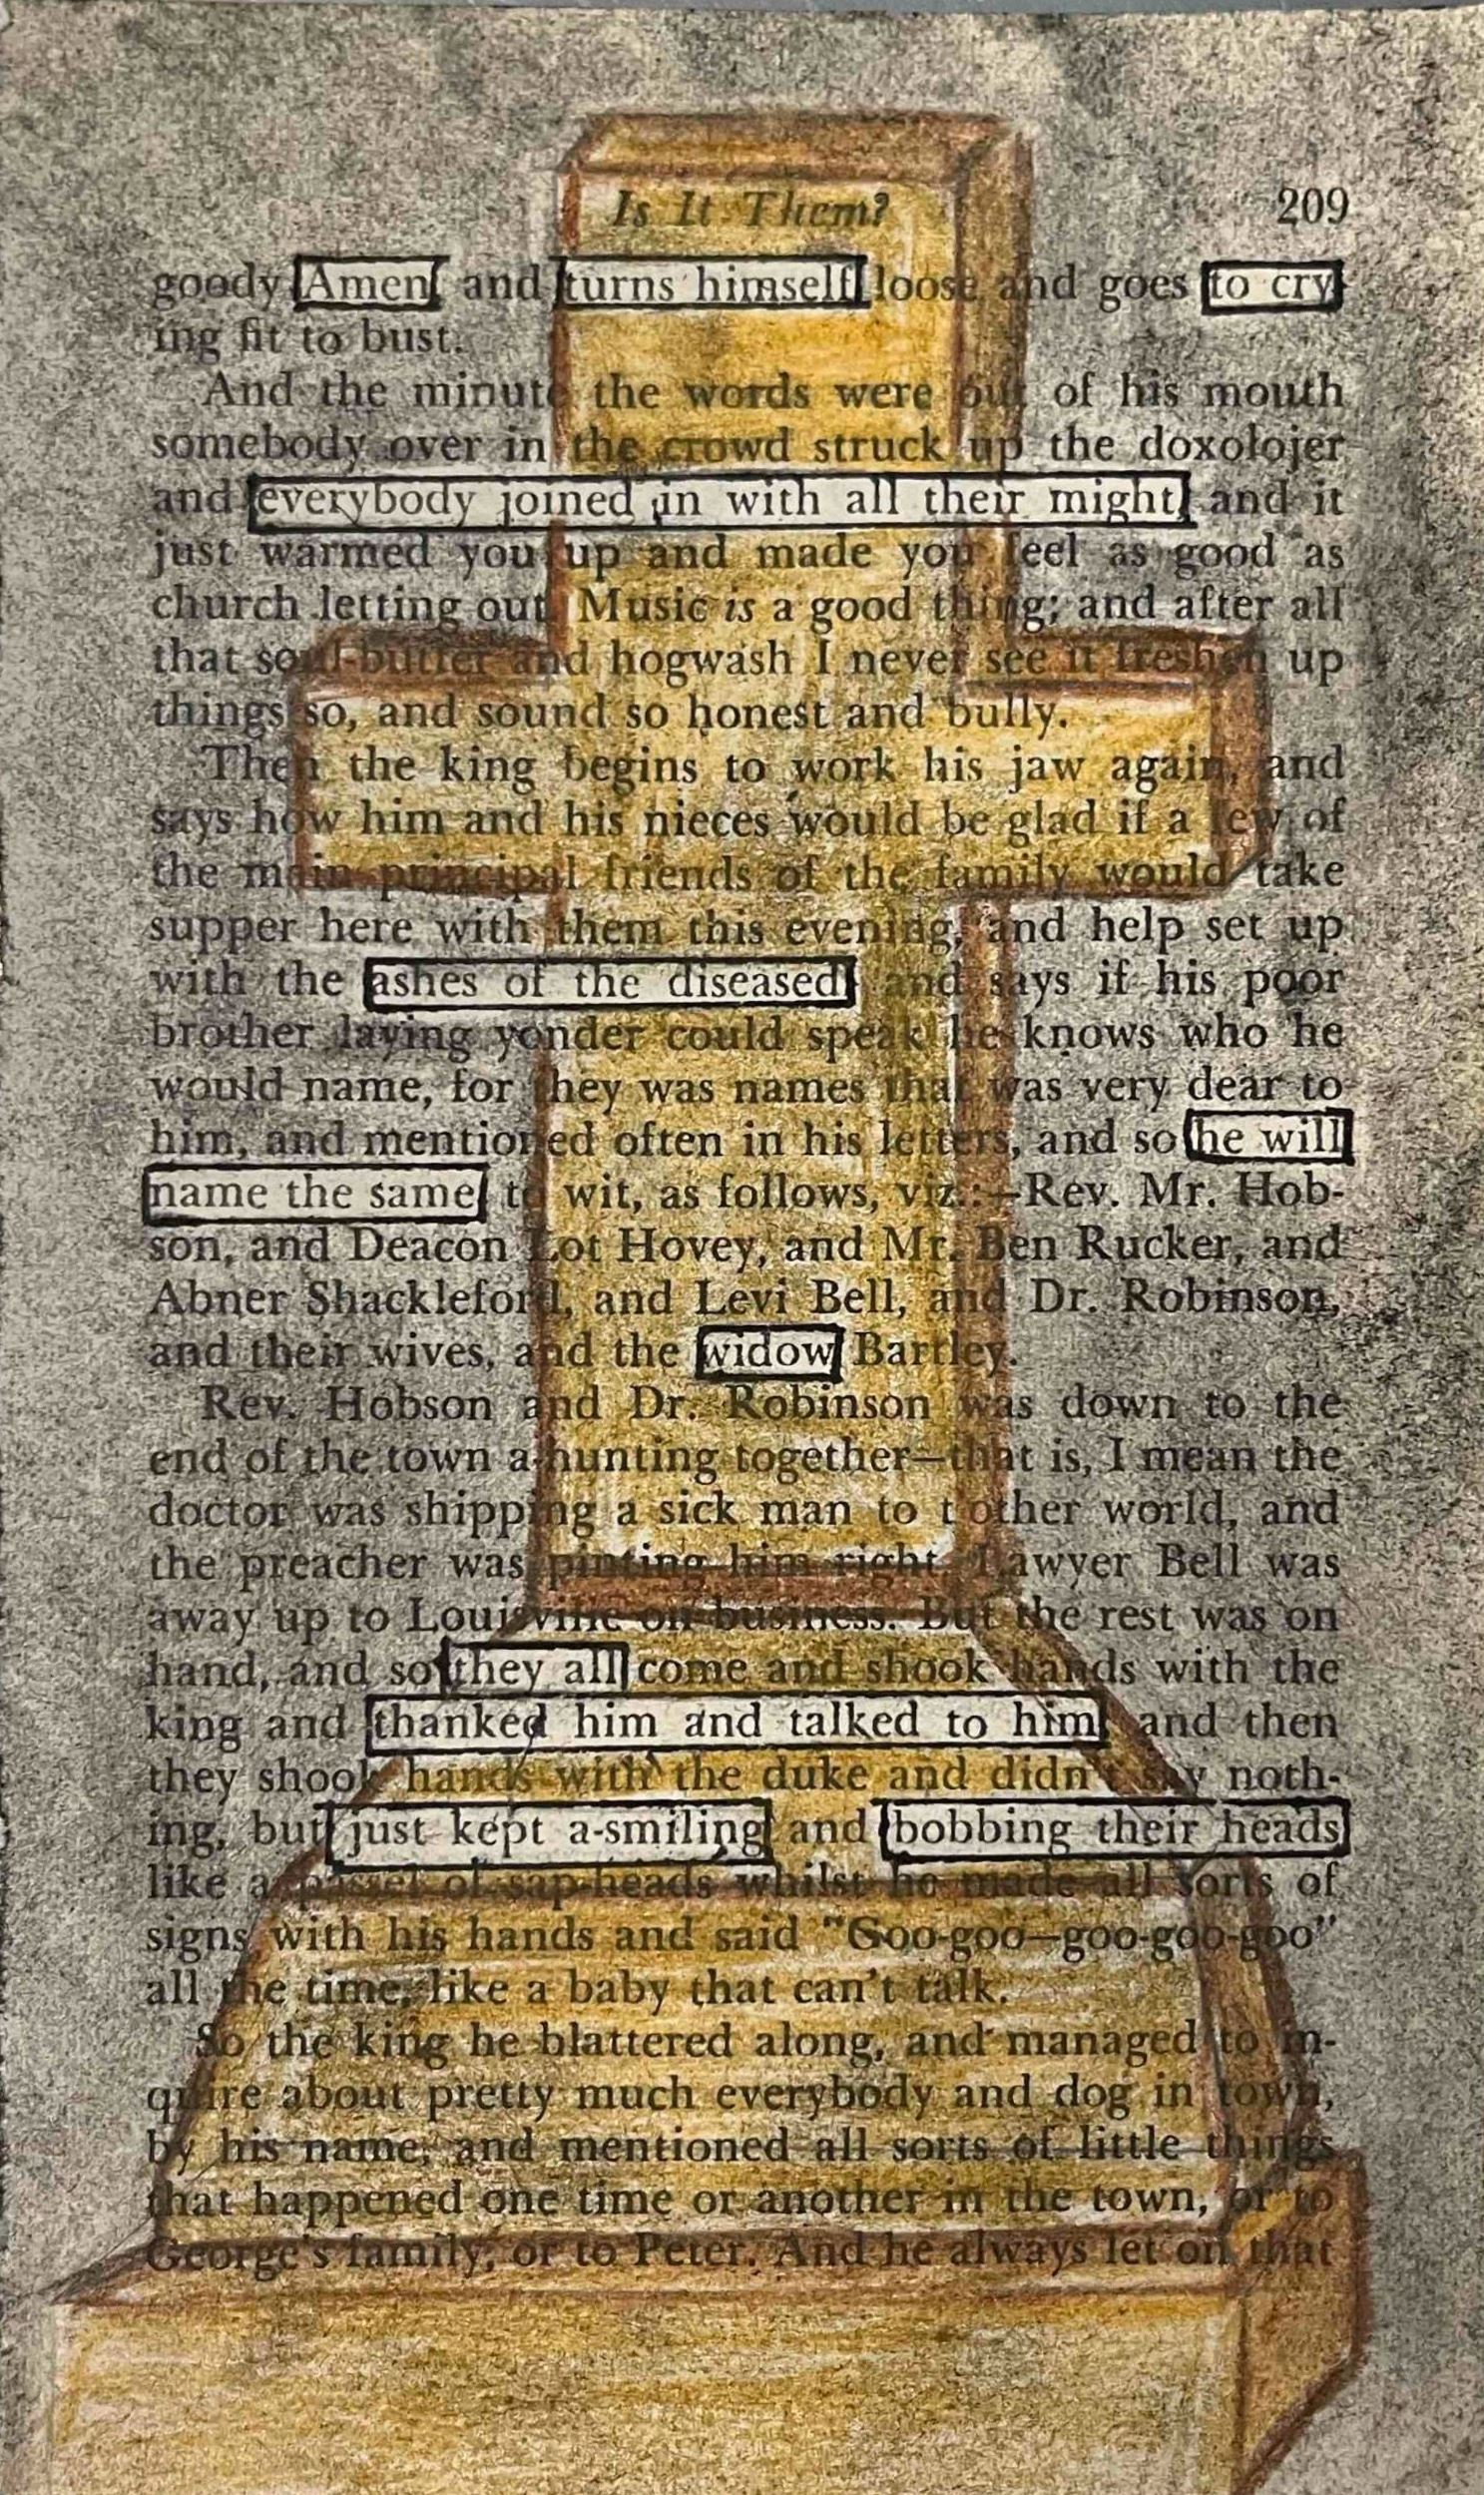 Is It Them? 209
goody Amen and turns himself loose and goes to cry
ing fit to bust.
And the minute the words were out of his mouth
somebody over in the crowd struck up the doxolojer
and everybody joined in with all their might, and it
just warmed you up and made you feel as good as
church letting out. Music is a good thing; and after all
that soul-butter and hogwash I never see it freshen up
things so, and sound so honest and bully.
Then the king begins to work his jaw again, and
says how him and his nieces would be glad if a few of
the main principal friends of the family would take
supper here with them this evening, and help set up
with the ashes of the diseased and says if his poor
brother laying yonder could speak he knows who he
would name, for they was names that was very dear to
him, and mentioned often in his letters, and so he will
name the same to wit, as follows, viz.:—Rev. Mr. Hob-
son, and Deacon Lot Hovey, and Mr. Ben Rucker, and
Abner Shackleford, and Levi Bell, and Dr. Robinson,
and their wives, and the widow Bartley.
Rev. Hobson and Dr. Robinson was down to the
end of the town a-hunting together—that is, I mean the
doctor was shipping a sick man to t'other world, and
the preacher was pinting him right. Lawyer Bell was
away up to Louisville on business. But the rest was on
hand, and so they all come and shook hands with the
king and thanked him and talked to him and then
they shook hands with the duke and didn't say noth-
ing, but just kept a-smiling and bobbing their heads
like a passel of sap-heads whilst he made all sorts of
signs with his hands and said "Goo-goo—goo-goo-goo"
all the time, like a baby that can't talk.
So the king he blattered along, and managed to in-
quire about pretty much everybody and dog in town,
by his name, and mentioned all sorts of little things
that happened one time or another in the town, or to
George's family, or to Peter. And he always let on that